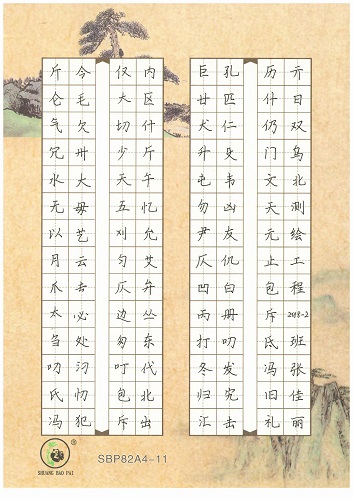 斤仑气冗水无以月爪太刍叨氏冯
今毛欠卅大毋艺云专必处习忉犯
仅大切少天五刈匀仄边匆叮包斥
内区什斤午忆允艾弁丛东代北出
巨廿犬升屯勿尹仄凹丙打冬归汇
孔匹仁殳韦凶友仉白册叨发究击
历什仍门文天元止包斥氐冯旧礼
亓日双鸟北测绘工程2018-2班张佳丽
SHUANG HAO PAI
SBP82A4-11